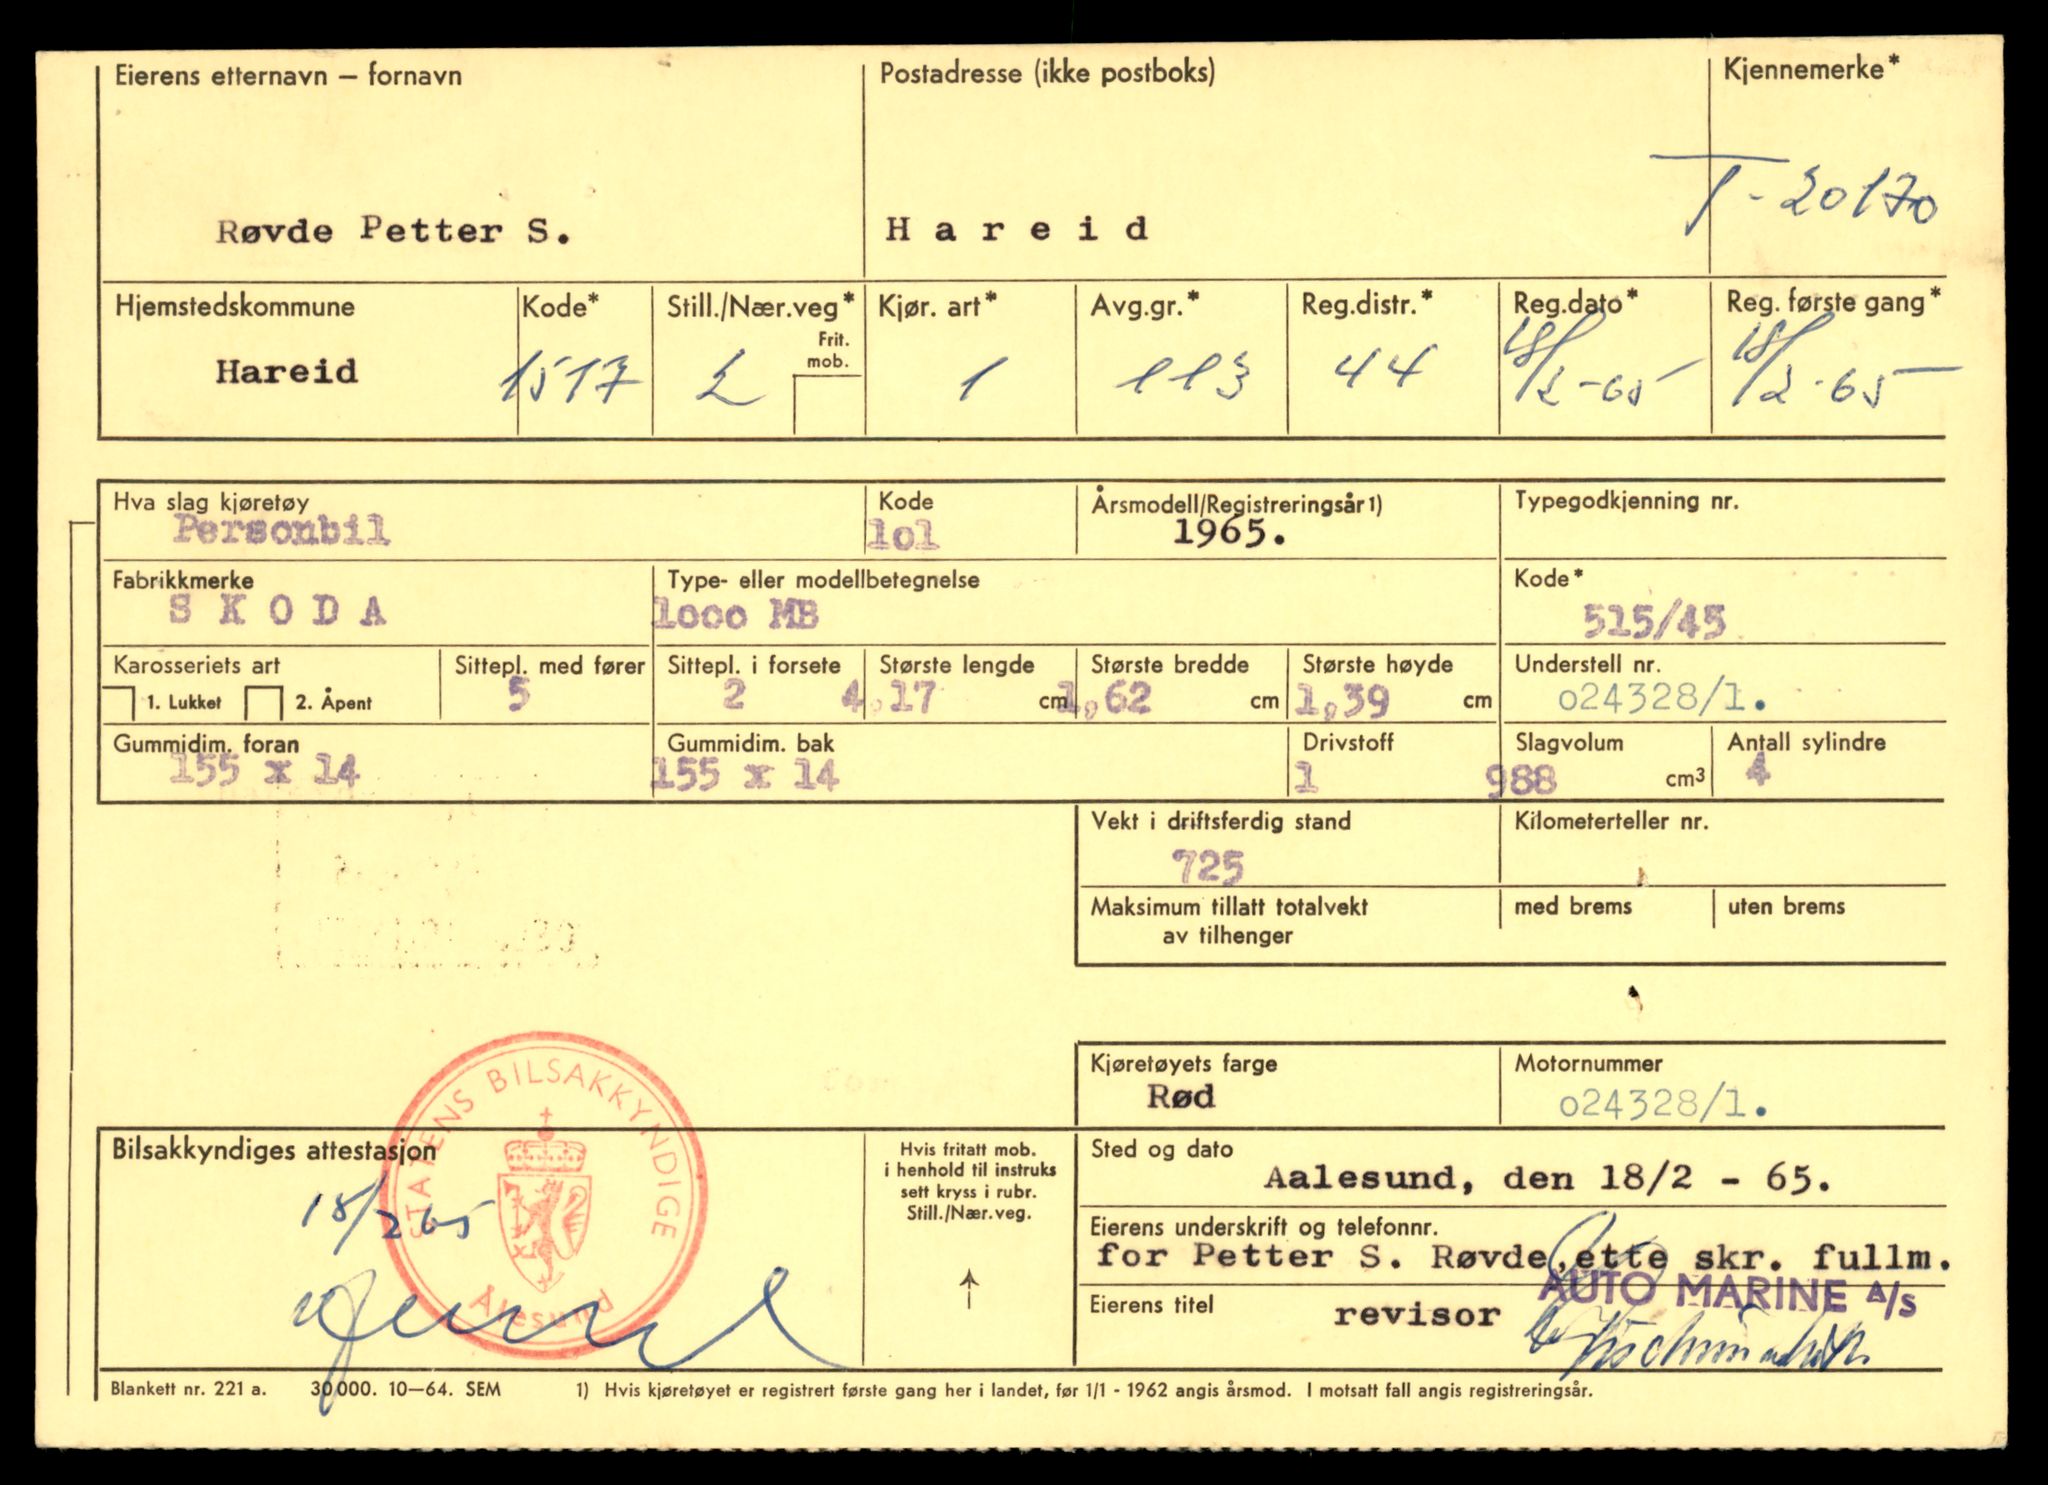 Eierens etternavn – fornavn
Postadresse (ikke postboks)
Kjennemerke*
Røvde Petter S.
H a r e i d
T-20170
Hjemstedskommune
Kode*
Still./Nær.veg*
Frit. mob.
Kjør. art*
Avg.gr.*
Reg.distr.*
Reg.dato*
Reg. første gang*
Hareid
1517
2
1
113
44
18/2-65
18/2-65
Hva slag kjøretøy
Kode
Årsmodell/Registreringsår 1)
Typegodkjenning nr.
Personbil
lol
1965.
Fabrikkmerke
Type- eller modellbetegnelse
Kode*
S K O D A
looo MB
515/45
Karosseriets art
1. Lukket
2. Åpent
Sittepl. med fører
Sittepl. i forsete
Største lengde
Største bredde
Største høyde
Understell nr.
5
2
4,17 cm
1,62 cm
1,39 cm
o24328/1.
Gummidim. foran
Gummidim. bak
Drivstoff
Slagvolum
Antall sylindre
155 x 14
155 x 14
1
988 cm3
4
Vekt i driftsferdig stand
Kilometerteller nr.
725
Maksimum tillatt totalvekt
av tilhenger
med brems
uten brems
Kjøretøyets farge
Motornummer
Rød
o24328/1.
STATENS BILSAKKYNDIGE
Ålesund
Bilsakkyndiges attestasjon
18/2 65
Hvis fritatt mob.
i henhold til instruks
sett kryss i rubr.
Still./Nær.veg.
Sted og dato
Aalesund, den 18/2 - 65.
Eierens underskrift og telefonnr.
for Petter S. Røvde,ette skr. fullm.
AUTO MARINE A/S
Eierens titel
revisor
Blankett nr. 221 a. 30000. 10–64. SEM
1) Hvis kjøretøyet er registrert første gang her i landet, før 1/1 - 1962 angis årsmod. I motsatt fall angis registreringsår.